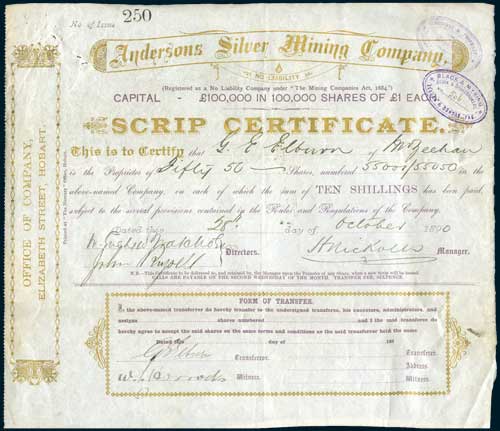 No. of Issue 250
Andersons Silver Mining Company.
NO LIABILITY
(Registered as a No Liability Company under "The Mining Companies Act, 1884.")
CAPITAL - £100,000 IN 100,000 SHARES OF £1 EACH
SCRIP CERTIFICATE.
This is to Certify that G. E. Elburn of Mt Zeehan
is the Proprietor of Fifty 50 Shares, numbered 55001/55050 in the
above-named Company, on each of which the sum of TEN SHILLINGS has been paid,
subject to the several provisions contained in the Rules and Regulations of the Company.
Dated this 28 day of October 1890
Directors.
H Nicholls Manager.
John
N.B.—This Certificate to be delivered to, and retained by, the Manager upon the Transfer of any Share, when a new form will be issued.
CALLS ARE PAYABLE ON THE SECOND WEDNESDAY OF THE MONTH. TRANSFER FEE, SIXPENCE.
FORM OF TRANSFER.
the above-mentioned transferror do hereby transfer to the undersigned transferee, his executors, administrators, and
assigns shares numbered and I the said transferee do
hereby agree to accept the said shares on the same terms and conditions as the said transferror held the same
Dated this day of 18
Transferror. Transferee.
Address
Witness. Witness.
OFFICE OF COMPANY,
ELIZABETH STREET, HOBART.